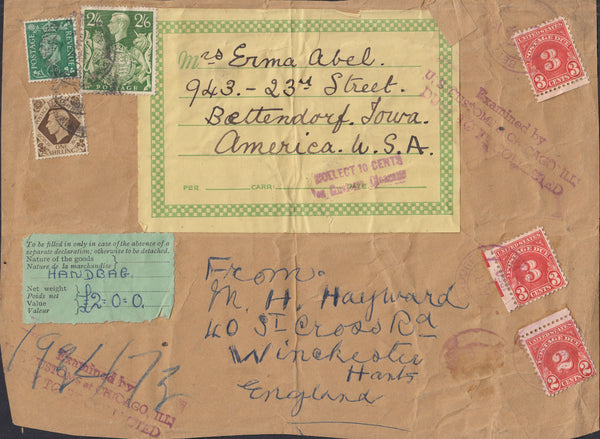 POSTAGE REVENUE
2/6 2/6
POSTAGE
ONE
SHILLING
Mrs Erma Abel.
943.-23rd Street.
Bettendorf. Iowa.
America. U.S.A.
PER CARR. DATE
COLLECT 10 CENTS
UNITED STATES
POSTAGE DUE
3
CENTS
Examined by
U.S. CUSTOMS CHICAGO, ILL.
To be filled in only in case of the absence of a
separate declaration; otherwise to be detached.
Nature of the goods
Nature de la marchandise
HANDBAG.
Net weight
Poids net
Value
Valeur
£2=0=0.
From:
M. H. Hayward
40 St Cross Rd
Winchester
Hants
England
UNITED STATES
POSTAGE DUE
3
CENTS
UNITED STATES
POSTAGE DUE
2
CENTS
Examined by
CHICAGO, ILL.